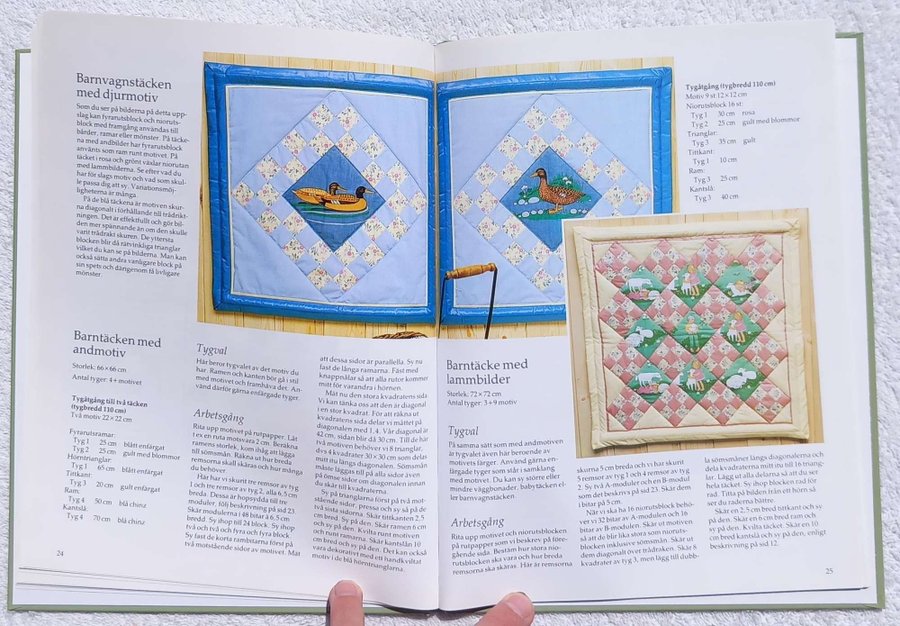 Barnvagnstäcken
med djurmotiv
Som du ser på bilderna på detta upp-
slag kan fyrarutsblock och nioruts-
block med framgång användas till
bårder, ramar eller mönster. På täcke-
na med andbilder har fyrarutsblock
använts som ram runt motivet. På
täcket i rosa och grönt växlar niorutan
med lammbilderna. Se efter vad du
har för slags motiv och vad som skul-
le passa dig att sy. Variationsmöj-
ligheterna är många.
På de blå täckena är motiven skur-
na diagonalt i förhållande till trådrikt-
ningen. Det är effektfullt och gör bil-
den mer spännande än om den skulle
varit trådrakt skuren. De yttersta
blocken blir då rätvinkliga trianglar
vilket du kan se på bilderna. Man kan
också sätta andra vanligare block på
sin spets och därigenom få livligare
mönster.
Barntäcken med
andmotiv
Storlek: 66×66 cm
Antal tyger: 4 + motivet
Tygåtgång till två täcken
(tygbredd 110 cm)
Två motiv 22×22 cm
Fyrarutsramar:
Tyg 1 25 cm blått enfärgat
Tyg 2 25 cm gult med blommor
Hörntrianglar:
Tyg 1 65 cm blått enfärgat
Tittkant:
Tyg 3 20 cm gult enfärgat
Ram:
Tyg 4 50 cm blå chinz
Kantslå:
Tyg 4 70 cm blå chinz
24
Tygval
Här beror tygvalet av det motiv du
har. Ramen och kanten bör gå i stil
med motivet och framhäva det. An-
vänd därför gärna enfärgade tyger.
Arbetsgång
Rita upp motivet på rutpapper. Låt
t ex en ruta motsvara 2 cm. Beräkna
ramens storlek, kom ihåg att lägga
till sömsmån. Räkna ut hur breda
remsorna skall skäras och hur många
du behöver.
Här har vi skurit tre remsor av tyg
1 och tre remsor av tyg 2, alla 6,5 cm
breda. Dessa är hopsydda till tre
moduler, följ beskrivning på sid 23.
Skär modulerna i 48 bitar à 6,5 cm
bredd. Sy ihop till 24 block. Sy ihop
två och två och fyra och fyra block.
Sy fast de korta rambitarna först på
två motstående sidor av motivet. Mät
att dessa sidor är parallella. Sy nu
fast de långa ramarna. Fäst med
knappnålar så att alla rutor kommer
mitt för varandra i hörnen.
Mät nu den stora kvadratens sida.
Vi kan tänka oss att den är diagonal
i en stor kvadrat. För att räkna ut
kvadratens sida delar vi måttet på
diagonalen med 1,4. Vår diagonal är
42 cm, sidan blir då 30 cm. Till de här
två motiven behöver vi 8 trianglar,
dvs 4 kvadrater 30×30 cm som delas
mitt itu längs diagonalen. Sömsmån
måste läggas till på alla sidor även
på ömse sidor om diagonalen innan
du skär till kvadraterna.
Sy på trianglarna först på två mot-
stående sidor, pressa och sy så på de
två sista sidorna. Skär tittkanten 2,5
cm bred. Sy på den. Skär ramen 6 cm
och sy på den. Kvilta runt motiven
och runt ramarna. Skär kantslån 10
cm bred och sy på den. Det kan också
vara dekorativt med ett handkviltat
motiv i de blå hörntrianglarna.
Tygåtgång (tygbredd 110 cm)
Motiv 9 st 12×12 cm
Niorutsblock 16 st:
Tyg 1 30 cm rosa
Tyg 2 25 cm gult med blommor
Trianglar:
Tyg 3 35 cm gult
Tittkant:
Tyg 1 10 cm
Ram:
Tyg 3 25 cm
Kantslå:
Tyg 3 40 cm
Barntäcke med
lammbilder
Storlek: 72×72 cm
Antal tyger: 3+9 motiv
Tygval
På samma sätt som med andmotiven
är tygvalet även här beroende av
motivets färger. Använd gärna en-
färgade tyger som står i samklang
med motivet. Du kan sy större eller
mindre väggbonader, babytäcken el-
ler barnvagnstäcken.
Arbetsgång
Rita upp motivet och niorutsblocken
på rutpapper som vi beskrev på före-
gående sida. Bestäm hur stora nio-
rutsblocken ska vara och hur breda
remsorna ska skäras. Här är remsorna
skurna 5 cm breda och vi har skurit
5 remsor av tyg 1 och 4 remsor av tyg
2. Sy två A-moduler och en B-modul
som det beskrivs på sid 23. Skär dem
i bitar på 5 cm.
När vi ska ha 16 niorutsblock behö-
ver vi 32 bitar av A-modulen och 16
bitar av B-modulen. Skär ut motiven
så att de blir lika stora som nioruts-
blocken inklusive sömsmån. Skär ut
dem diagonalt över trådraken. Skär 8
kvadrater av tyg 3, men lägg till dubb-
la sömsmåner längs diagonalerna och
dela kvadraterna mitt itu till 16 triang-
lar. Lägg ut alla delarna så att du ser
hela täcket. Sy ihop blocken rad för
rad. Titta på bilden från ett hörn så
ser du raderna bättre.
Skär en 2,5 cm bred tittkant och sy
på den. Skär en 6 cm bred ram och
sy på den. Kvilta täcket. Skär en 10
cm bred kantslå och sy på den, enligt
beskrivning på sid 12.
25